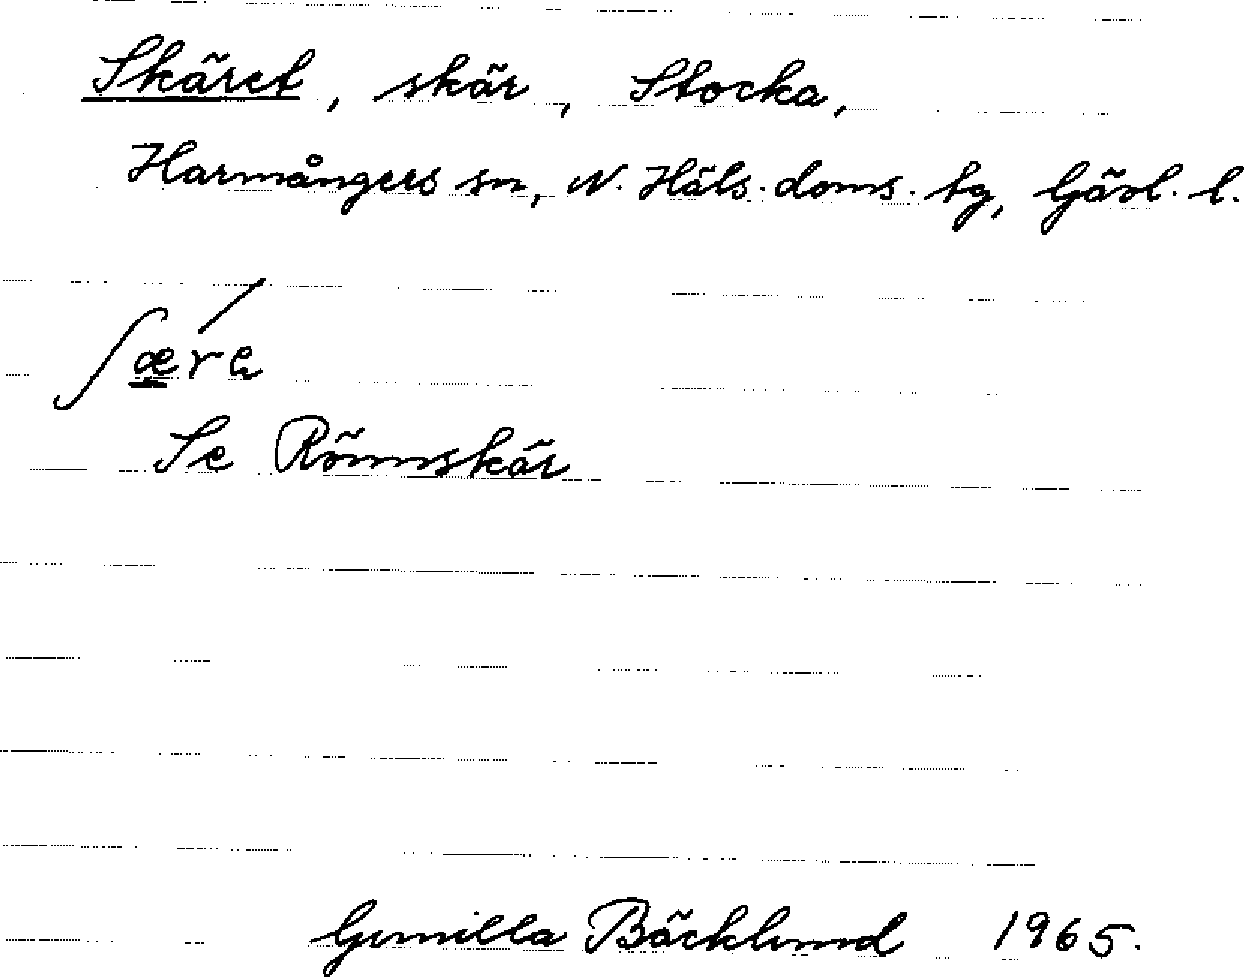 Skäret, skär, Stocka,
Harmångers sn, N. Häls. doms. tg, Gävl. l.
ʃǽ̲re
Se Rönnskär
Gunilla Bäcklund 1965.